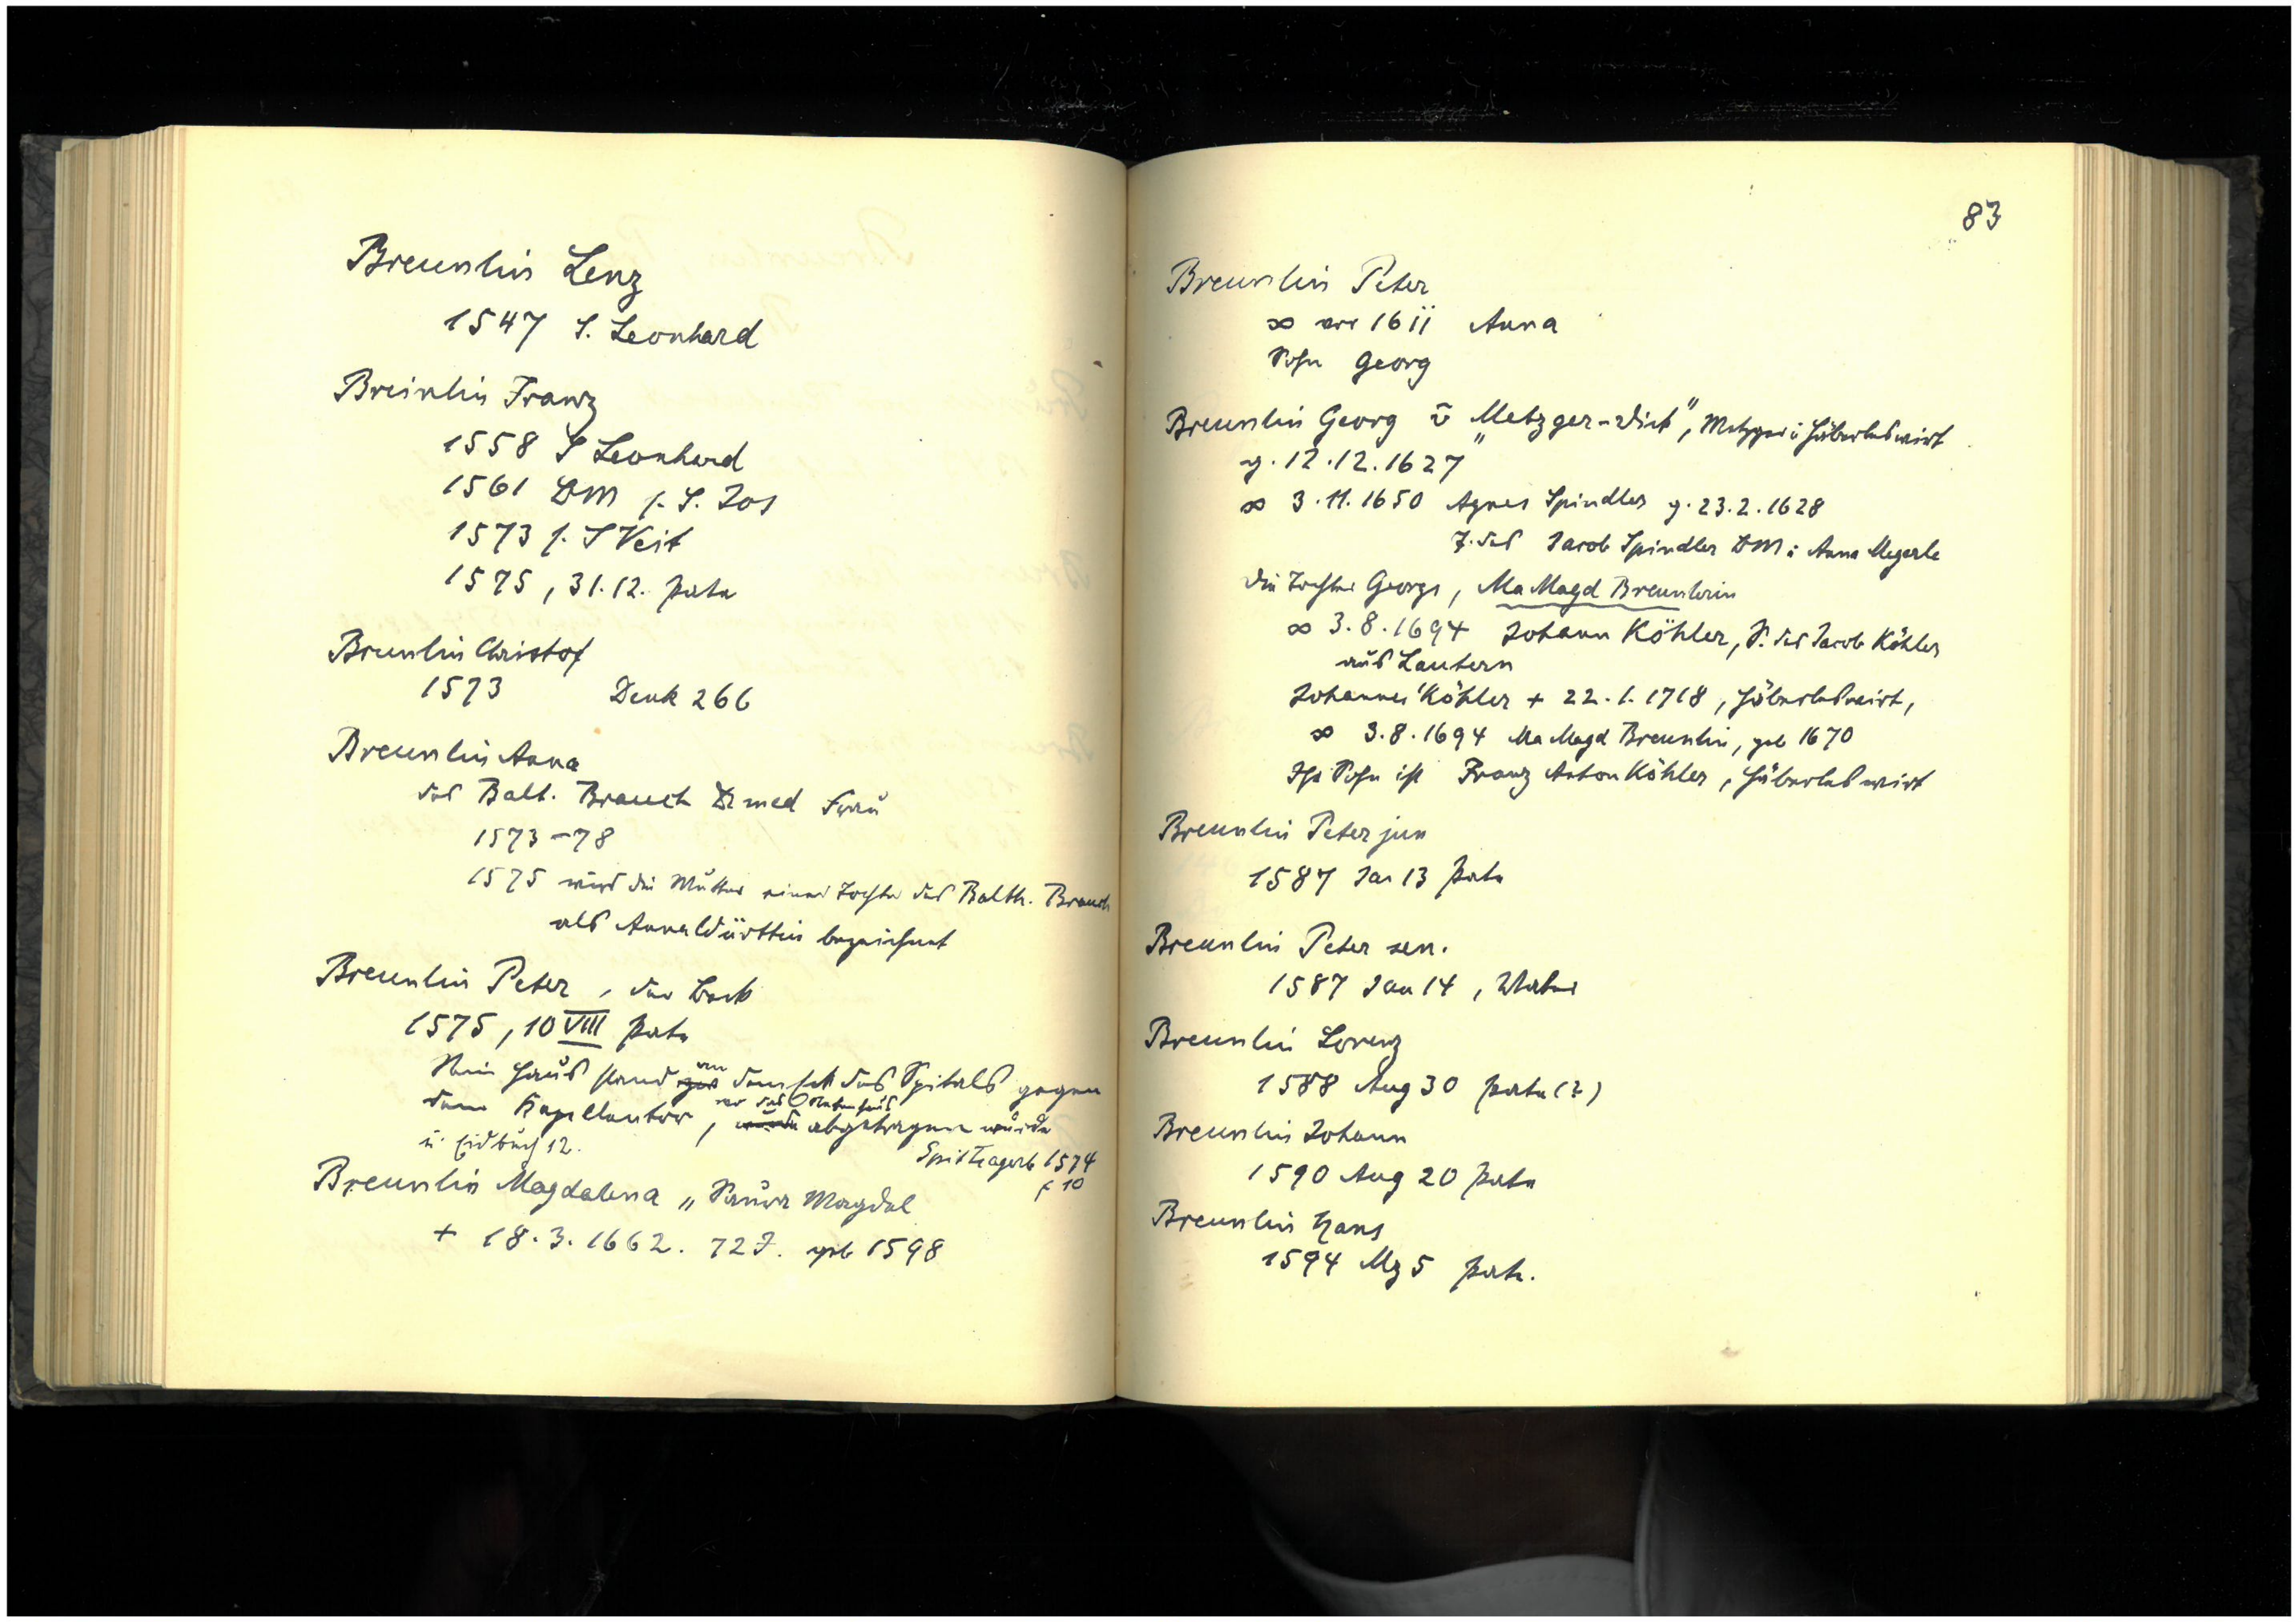 Breunlin Lenz
1547 S. Leonhard
Breinlin Franz
1558 S Leonhard
1561 DM f. S. Jos
1573 f. S Veit
1575, 31.12. Pate
Breunlin Christof
1573 Denk 266
Breunlin Anna
des Balt. Brauch Dr med Frau
1573-78
1575 wird die Mutter einer Tochter des Balth. Brauch
als Anna bezeichnet
Breunlin Peter, der Beck
1575, 10 VIII Pate
Sein Haus stand am des Spitals gegen
dem Kapellentor, wo das abgetragen wurde
u. Eidbuch 12.
Spit Lagerb 1574
f 10
Breunlin Magdalena „Saura Magdal
+ 18.3.1662. 72 J. geb 1598
83
Breunlin Peter
∞ vor 1611 Anna
Sohn Georg
Breunlin Georg ü „Metzger-Wirt", Metzger u Häberleswirt
g. 12.12.1627
∞ 3.11.1650 Agnes Spindler g. 23.2.1628
T. des Jacob Spindler DM u Anna Megerle
Die Tochter Georgs, Ma Magd Breunlerin
∞ 3.8.1694 Johann Köhler, S. des Jacob Köhler
aus Lautern
Johannes Köhler + 22.1.1718, Häberleswirt,
∞ 3.8.1694 Ma Magd Breunlin, geb 1670
Ihr Sohn ist Franz Anton Köhler, Häberleswirt
Breunlin Peter jun
1587 Jan 13 Pate
Breunlin Peter sen.
1587 Jan 14, Vater
Breunlin Lorenz
1588 Aug 30 Pate (?)
Breunlin Johann
1590 Aug 20 Pate
Breunlin Hans
1594 Mz 5 Pate.